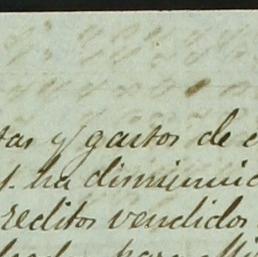 tas y gastos de c
ha disminuid
reditos vendidos